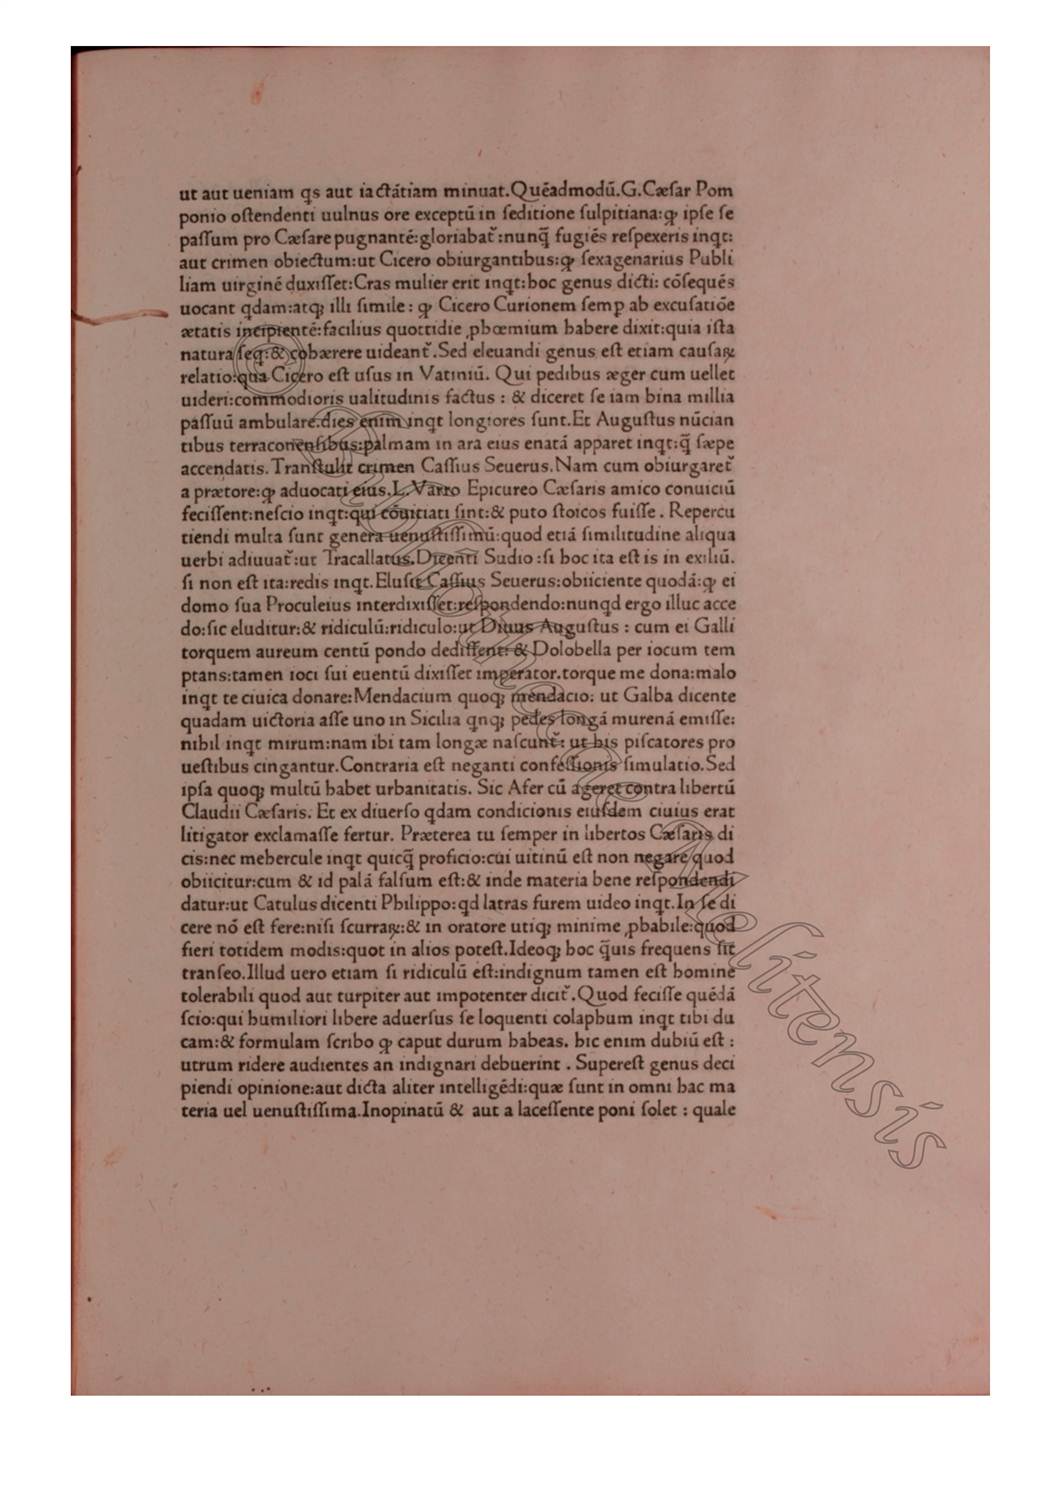 ut aut ueniam qs aut iactātiam minuat.Quēadmodū.G.Cæſar Pom
ponio oſtendenti uulnus ore exceptū in ſeditione ſulpitiana:ꝙ ipſe ſe
paſſum pro Cæſare pugnantē:gloriabat᷑:nunq̄ fugiēs reſpexeris inqt:
aut crimen obiectum:ut Cicero obiurgantibus:ꝙ ſexagenarius Publi
liam uirginē duxiſſet:Cras mulier erit inqt:hoc genus dicti: cōſequēs
uocant qdam:atqꝫ illi ſimile: ꝙ Cicero Curionem ſemꝑ ab excuſatiōe
ætatis incipientē:facilius quottidie ꝓhœmium habere dixit:quia iſta
natura ſeq:& cohærere uideant᷑.Sed eleuandi genus eſt etiam cauſaꝝ
relatio:qua Cicero eſt uſus in Vatiniū. Qui pedibus æger cum uellet
uideri:commodioris ualitudinis factus : & diceret ſe iam bina millia
paſſuū ambulare.dies enim inqt longiores ſunt.Et Auguſtus nūcian
tibus terraconenſibus:palmam in ara eius enatā apparet inqt:q̄ ſæpe
accendatis.Tranſtulit crimen Caſſius Seuerus.Nam cum obiurgaret᷑
a prætore:ꝙ aduocati eius.L.Varro Epicureo Cæſaris amico conuiciū
feciſſent:neſcio inqt:qui cōuitiati ſint:& puto ſtoicos fuiſſe. Repercu
tiendi multa ſunt genera uenuſtiſſimū:quod etiā ſimilitudine aliqua
uerbi adiuuat᷑:ut Tracallatus.Dicenti Sudio:ſi hoc ita eſt is in exiliū.
ſi non eſt ita:redis inqt.Eluſit Caſſius Seuerus:obiiciente quodā:ꝙ ei
domo ſua Proculeius interdixiſſet:reſpondendo:nunqd ergo illuc acce
do:ſic eluditur:& ridiculū:ridiculo:ut Diuus Auguſtus : cum ei Galli
torquem aureum centū pondo dediſſent: & Dolobella per iocum tem
ptans:tamen ioci ſui euentū dixiſſet imperator.torque me dona:malo
inqt te ciuica donare:Mendacium quoqꝫ mendacio: ut Galba dicente
quadam uictoria aſſe uno in Sicilia qnqꝫ pedes longā murenā emiſſe:
nihil inqt mirum:nam ibi tam longæ naſcunt᷑: ut his piſcatores pro
ueſtibus cingantur.Contraria eſt neganti confeſſionis ſimulatio.Sed
ipſa quoqꝫ multū habet urbanitatis. Sic Afer cū ageret contra libertū
Claudii Cæſaris. Et ex diuerſo qdam condicionis eiuſdem cuius erat
litigator exclamaſſe fertur. Præterea tu ſemper in libertos Cæſaris di
cis:nec mehercule inqt quicq̄ proficio:cui uitinū eſt non negare quod
obiicitur:cum & id palā falſum eſt:& inde materia bene reſpondendi
datur:ut Catulus dicenti Philippo:qd latras furem uideo inqt.In ſe di
cere nō eſt fere:niſi ſcurraꝝ:& in oratore utiqꝫ minime ꝓbabile:quod
fieri totidem modis:quot in alios poteſt.Ideoqꝫ hoc q̄uis frequens ſit
tranſeo.Illud uero etiam ſi ridiculū eſt:indignum tamen eſt homine
tolerabili quod aut turpiter aut impotenter dicit᷑.Quod feciſſe quēdā
ſcio:qui humiliori libere aduerſus ſe loquenti colaphum inqt tibi du
cam:& formulam ſcribo ꝙ caput durum habeas. hic enim dubiū eſt :
utrum ridere audientes an indignari debuerint . Supereſt genus deci
piendi opinione:aut dicta aliter intelligēdi:quæ ſunt in omni hac ma
teria uel uenuſtiſſima.Inopinatū & aut a laceſſente poni ſolet : quale
© Bibliotheca Melitensis